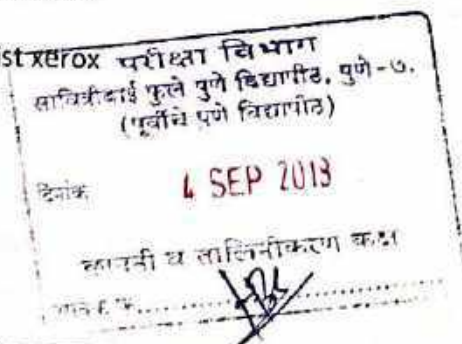 st xerox
परीक्षा विभाग
सावित्रीबाई फुले पुणे विद्यापीठ, पुणे-७.
(पूर्वीचे पुणे विद्यापीठ)
दिनांक
4 SEP 2013
व तालिनीकरण कक्ष